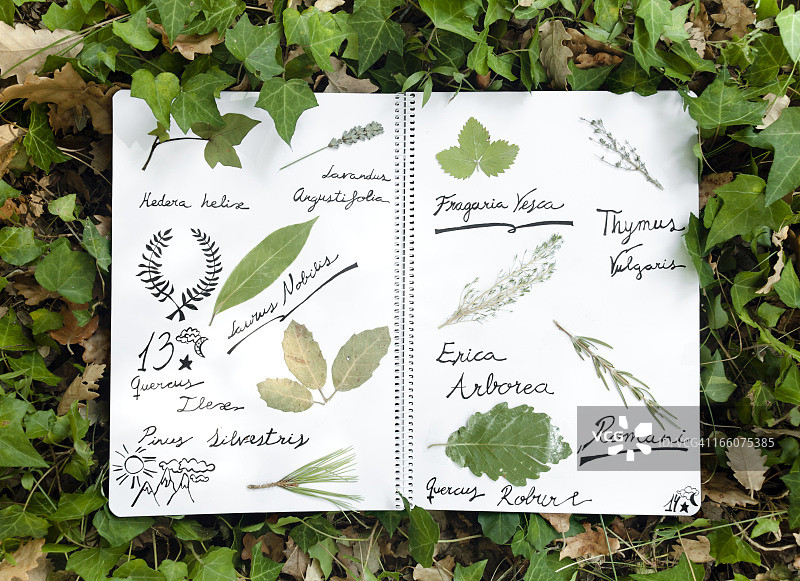 Hedera helix
Lavandus
Angustifolia
Laurus Nobilis
13
Quercus
Ilex
Pinus Silvestris
Fragaria Vesca
Thymus
Vulgaris
Erica
Arborea
Romani
VCG
VCG41166075385
Quercus Robure
14